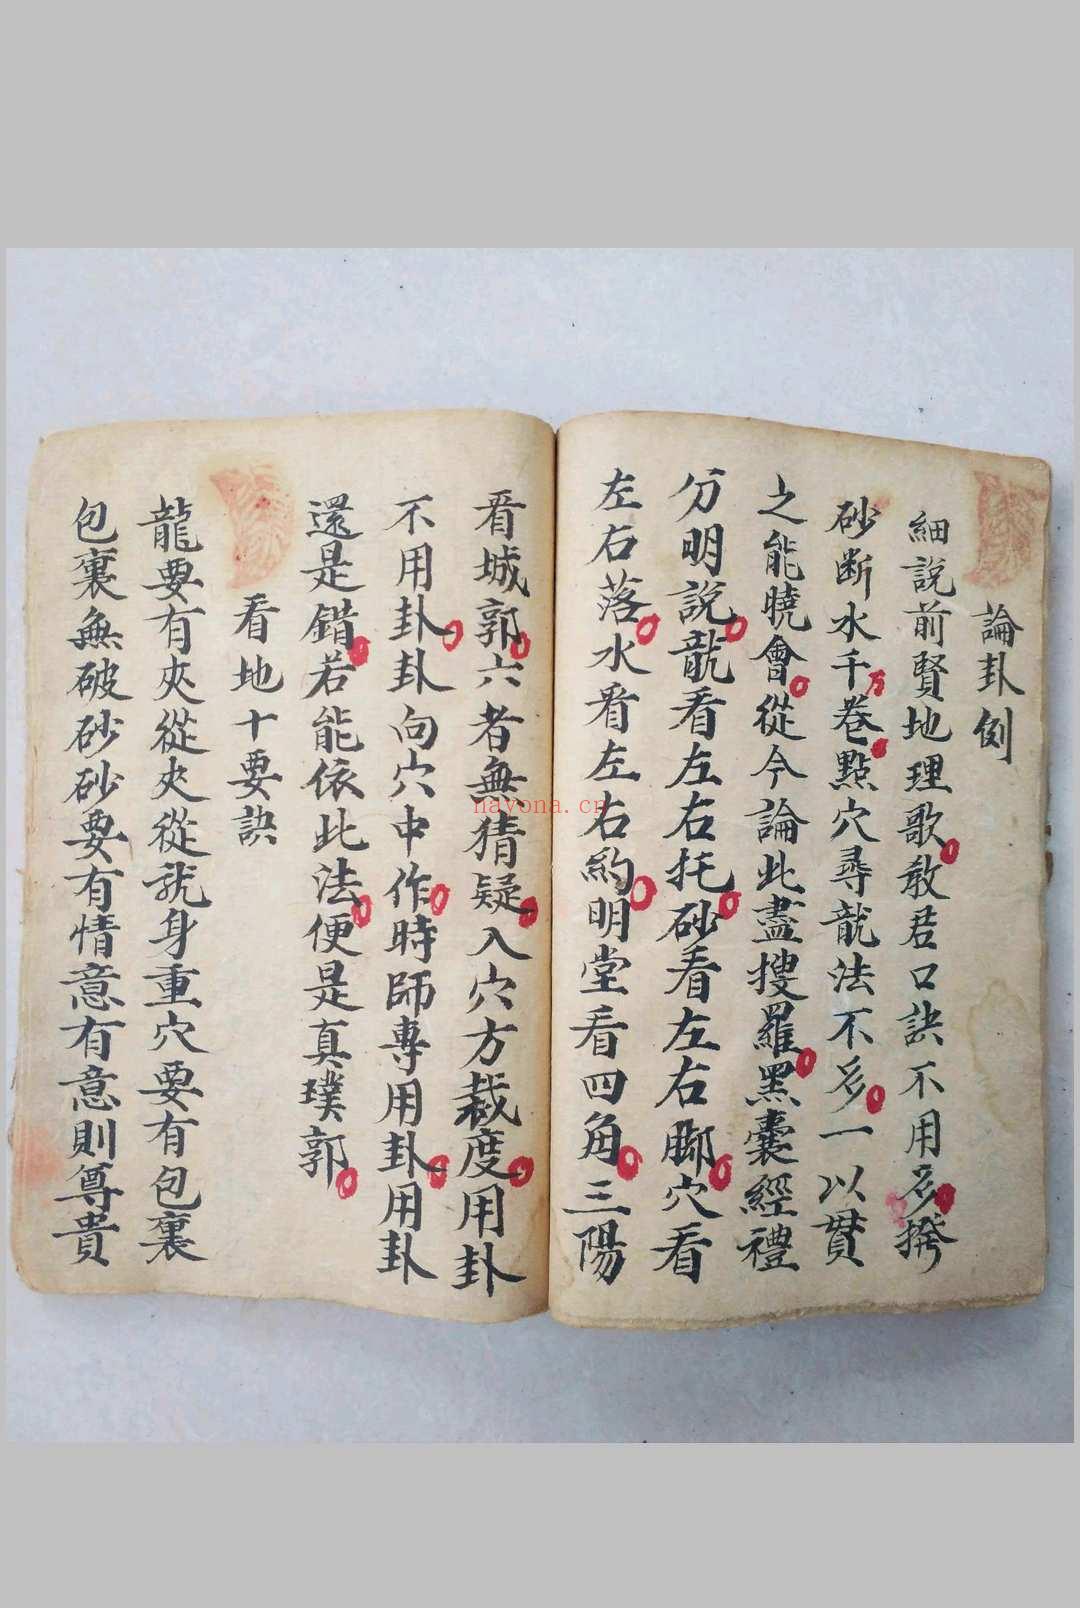 論卦例
細說前賢地理歌教君口訣不用多撥
砂断水千万卷點穴尋龍法不多一以貫
之能曉會從今論此盡搜羅黑囊經禮
分明說龍看左右托砂看左右腳穴看
左右落水看左右約明堂看四角三陽
看城郭六者無猜疑入穴方裁度用卦
不用卦卦向穴中作時師專用卦用卦
還是錯若能依此法便是真璞郭
看地十要訣
龍要有夾從夾從就身重穴要有包裹
包裹無破砂砂要有情意有意則尊貴
nayona.cn